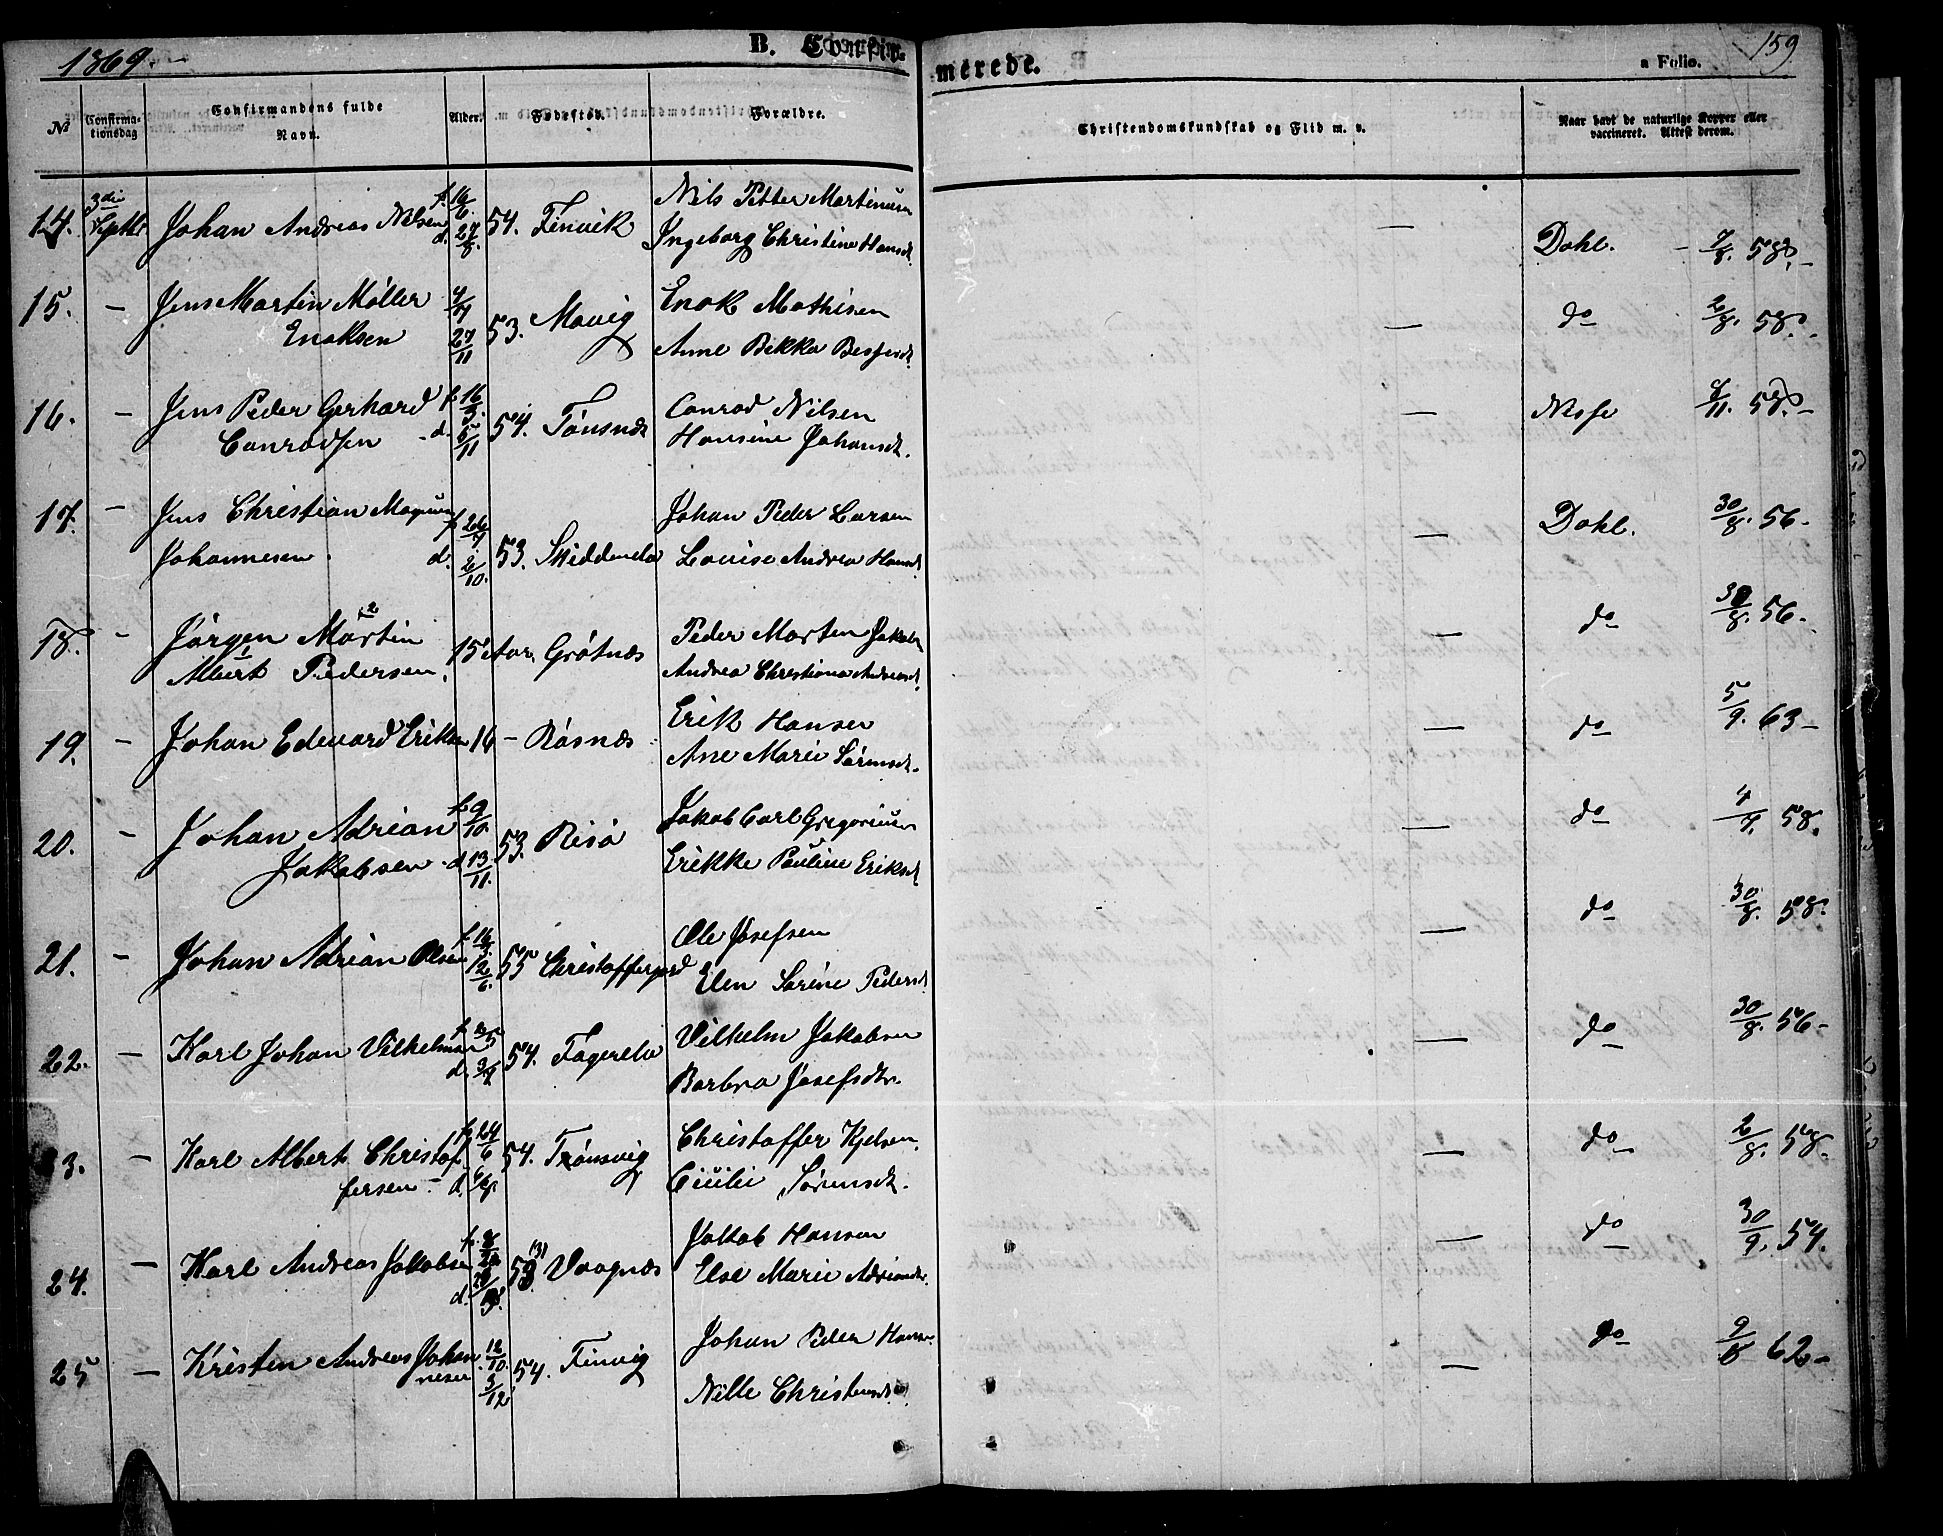 1869.
B. Confir-
merede.
159
a Folio.
№
Confirma-
tionsdag
Confirmandens fulde
Navn.
Alder.
Fødested.
Forældre.
Christendomskundskab og Flid m. v.
Naar havt de naturlige Kopper eller
vaccineret. Attest derom.
14. 3die Septbr Johan Andreas Nilsen f. 16/6. d. 27/8. 54. Finvik Nils Petter Martinusen
Ingeborg Christine Hansd.
— Dahl. 7/8. 58.
15. — Jens Martin Møller
Enoksen 27/11 53. Mavig Enok Mathisen
Anne Bekka
— do 2/8. 58.
16. — Jens Peder Gerhard
Conradsen f. 16/3. d. 5/11 54. Tønsnæs Conrad Nilsen
Hansine Johansd.
— 58.
17. — Jens Christian Magnus
Johannesen d. 2/10. 53. Skiddenelv Johan Peder Larsen
Louise Andrea Hansd.
— Dahl. 30/8. 56.
18. — Jørgen Martin
Albert Pedersen, 15 Aar. Grøtnæs Peder Morten Jakobs.
Andrea Christiana Andreasd.
— do 30/8. 56.
19. — Johan Edevard Eriksen 16 — Røsnæs Erik Hansen
Ane Marie Sørensd.
— do 5/9. 63
20. — Johan Adrian
Jakobsen f. 9/10 d. 13/11. 53. Risø Jakob Carl Gregoriusen
Erikke Pauline Eriksd.
— do 58.
21. — Johan Adrian Olsen 12/6. 55 Christoffergard Ole Josefsen
Elen Sørine Pedersd.
— do 30/8. 58.
22. — Karl Johan Vilhelmsen 54. Fagerelv Vilhelm Jakobsen
Barbra Josefsdtr.
— do 30/8. 56
23. — Karl Albert Christof-
fersen f. 24/6 54. Trønsvig Christoffer Kjelsen
Cicilie Sørensd.
— do 2/8. 58.
24. — Karl Andreas Jakobsen 53 Vaagnæs Jakob Hansen
Else Marie Adriansdr.
— do 30/9. 54.
25 — Kristen Andreas Johan-
nesen 12/10. 3/12 54. Finvig Johan Peder Hansen
Nille Christensd.
— do 9/8 62